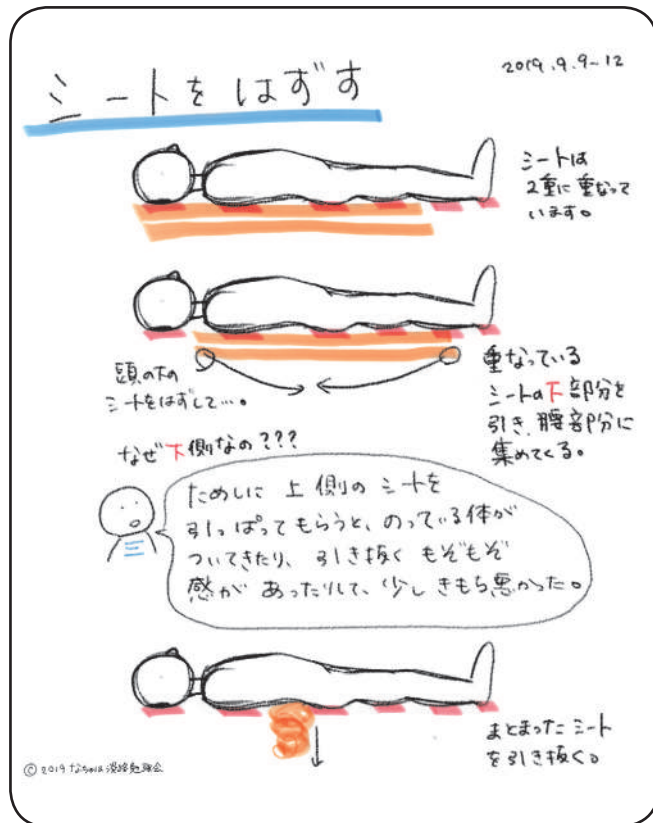 シートを はずす
2019.9.9~12
シートは
2重に重なって
います。
頭の下の
シートをはずして…。
重なっている
シートの下部分を
引き、腰部分に
集めてくる。
なぜ下側なの???
ためしに 上側のシートを
引っぱってもらうと、のっている体が
ついてきたり、引き抜く もぞもぞ
感が あったりして、少し きもち悪かった。
まとまったシート
を引き抜く。
© 2019